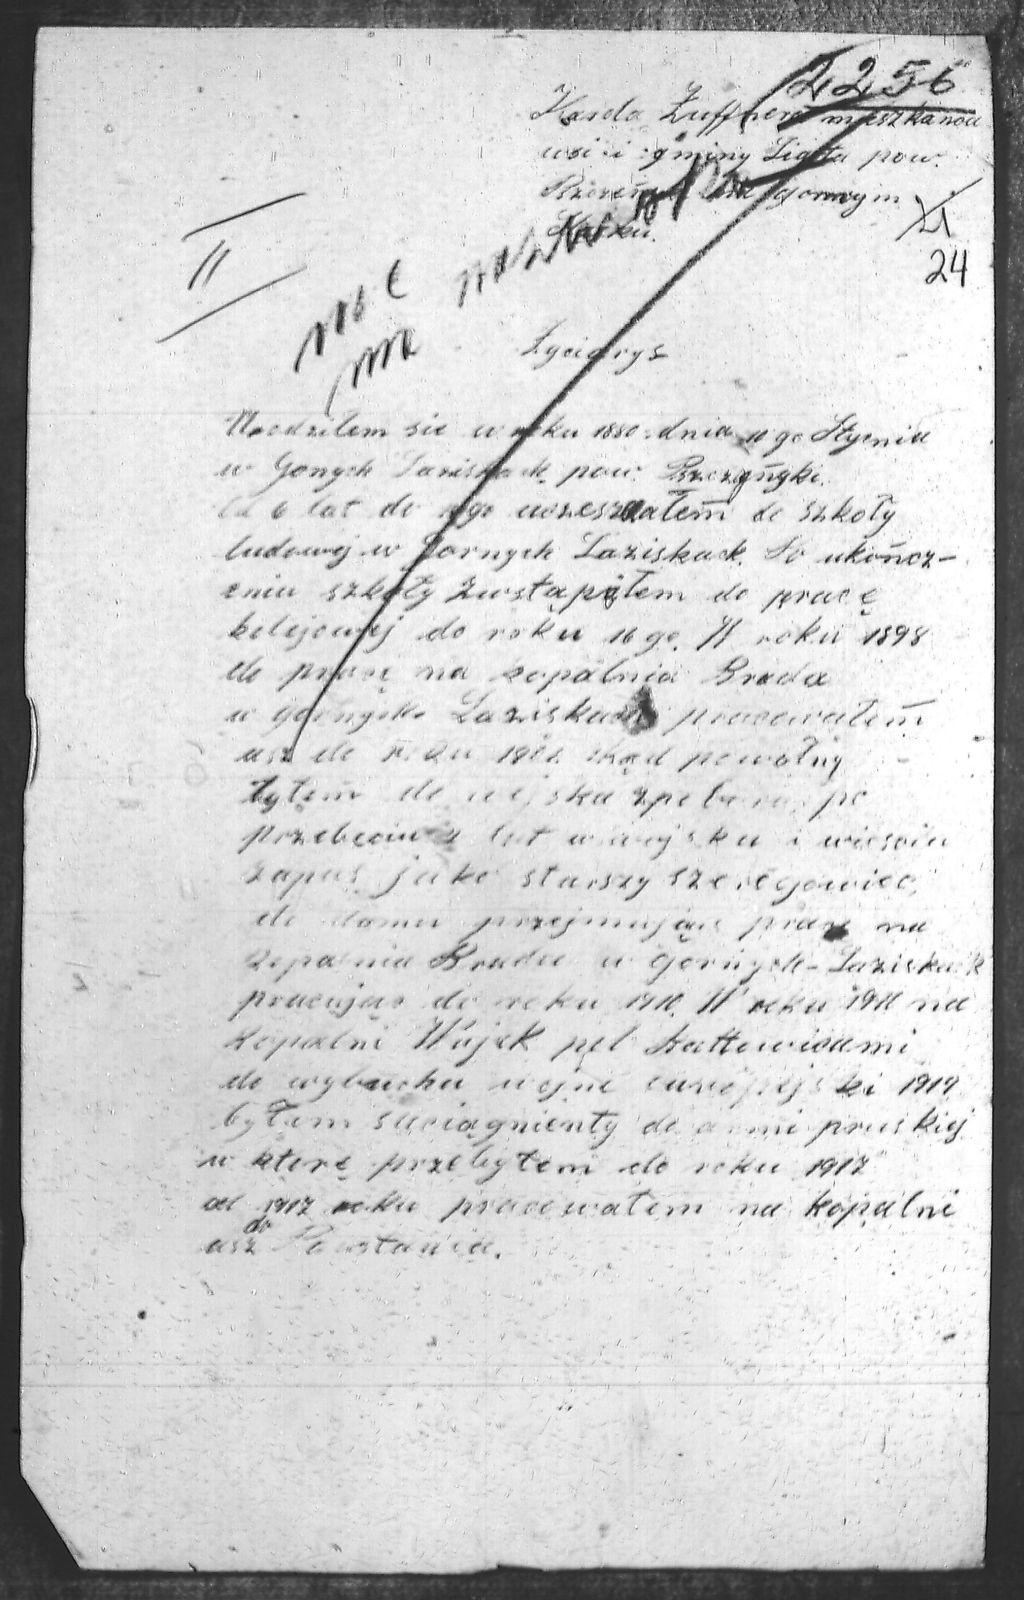 2256
Karola Zuffnera mieszkańca
wsi i gminy Ligota pow.
górnym
Śląsku.
21
24
II
nie ma nazwiska
Życiorys
Urodziłem sie w roku 1880 dnia 11 go Stycnia
w Gonych Laziskach pow. Pszczyńgki.
6 lat do ego uczeszałem do szkoły
ludowej w Gornych Laziskack. Po ukończ-
eniu szkoły zwstąpiłem do pracę
kolejowej do roku 16 go. W roku 1898
do pracę na kopalnia Brada
w gornych Laziskach pracowałem
asz do roku 190 skąd powołny
byłem do wojska po
przebyciu 2 lat w wojsku i
zapas jako starszy szeregowiec,
do domu przejmując pracę na
kopalnia Brada w gornych-Laziskack
pracując do roku 1911. W roku 1911 na
kopalni Wujek pod Kattowicami
do wybuchu wojne europejski 1914
byłem suciągnienty do armi pruskiej
w którę przebyłem do roku 1917
od 1917 roku pracowałem na kopalni
asz do Powstania.